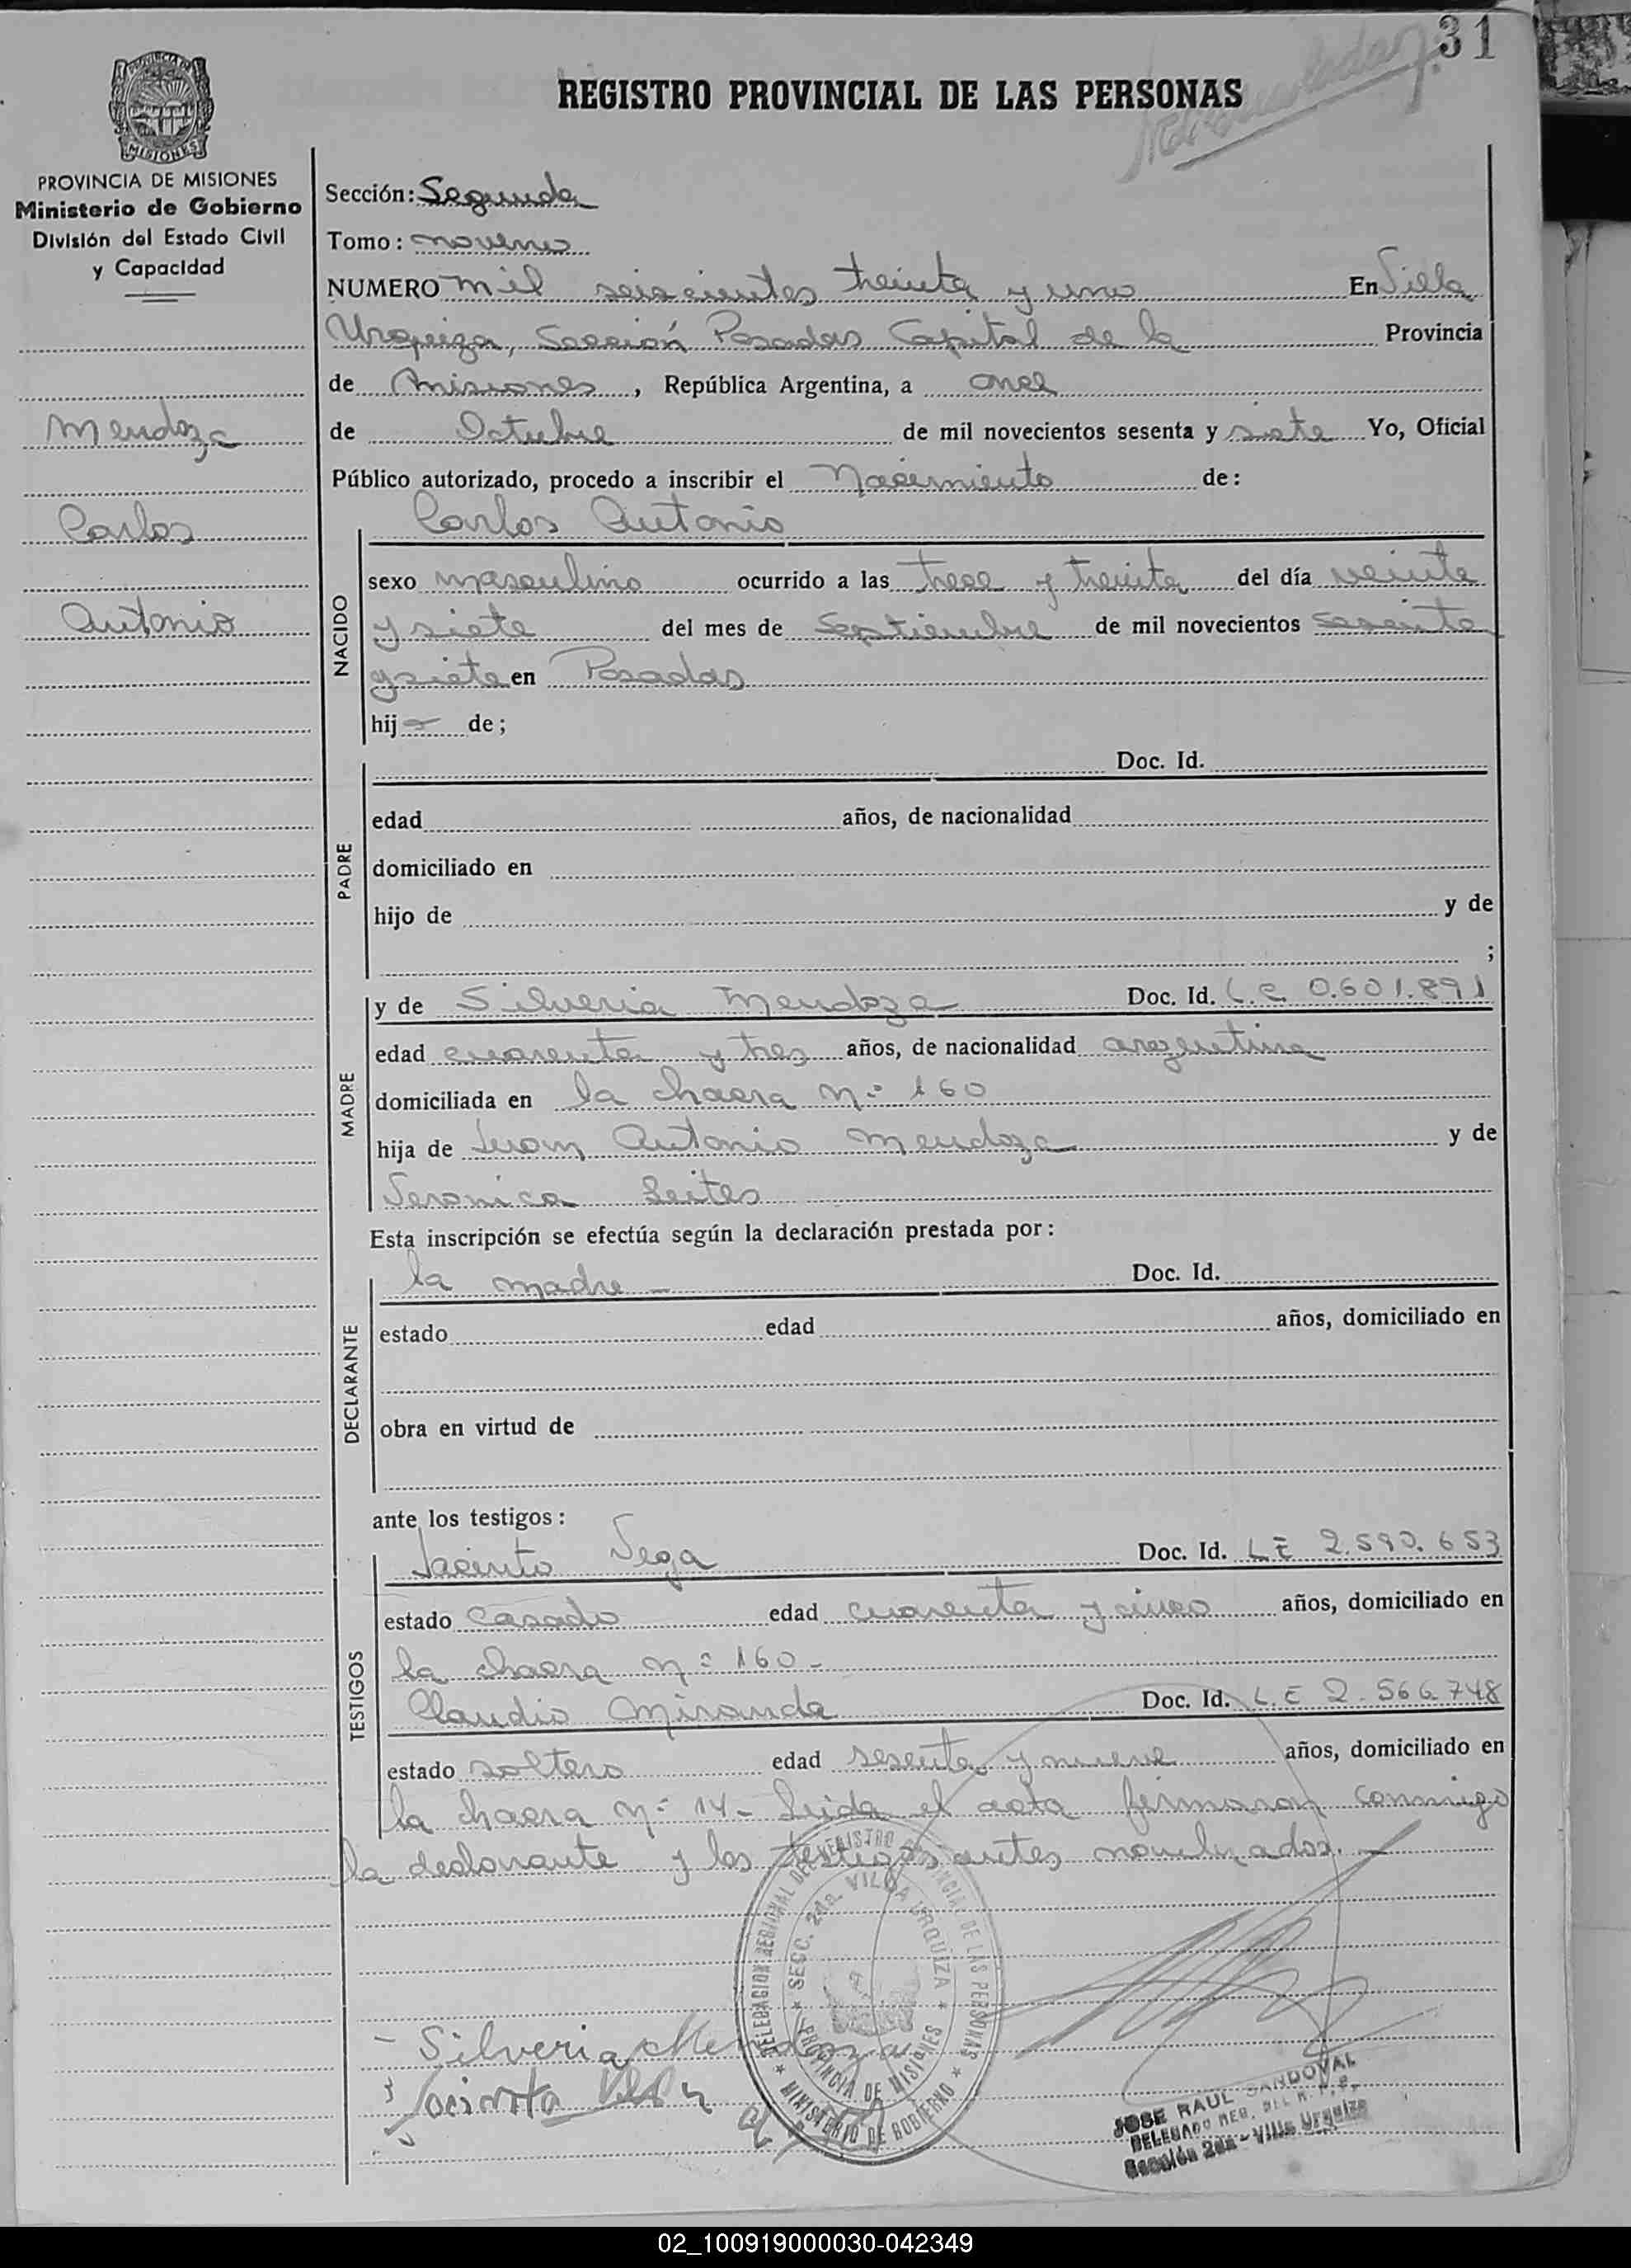 31
REGISTRO PROVINCIAL DE LAS PERSONAS
MISIONES
PROVINCIA DE MISIONES
Ministerio de Gobierno
División del Estado Civil
y Capacidad
Mendoza
Carlos
Antonio
Sección: Segunda
Tomo: noveno
NUMERO mil seiscientos treinta y uno En Villa
Urquiza, Sección Posadas Capital de la Provincia
de Misiones, República Argentina, a once
de Octubre de mil novecientos sesenta y siete Yo, Oficial
Público autorizado, procedo a inscribir el Nacimiento de:
Carlos Antonio
NACIDO
sexo masculino ocurrido a las trece y treinta del día veinte
y siete del mes de Septiembre de mil novecientos sesenta
y siete en Posadas
hij de;
Doc. Id.
PADRE
edad años, de nacionalidad
domiciliado en
hijo de y de
;
MADRE
y de Silveria Mendoza Doc. Id. L.C. 0.601.891
edad cuarenta y tres años, de nacionalidad argentina
domiciliada en la chacra n.º 160
hija de Juan Antonio Mendoza y de
Veronica Leites
Esta inscripción se efectúa según la declaración prestada por:
la madre – Doc. Id.
DECLARANTE
estado edad años, domiciliado en
obra en virtud de
ante los testigos:
TESTIGOS
Jacinto Vega Doc. Id. LE 2.590.653
estado casado edad cuarenta y cinco años, domiciliado en
la chacra n.º 160 –
Claudio Miranda Doc. Id. L.E 2.566.748
estado soltero edad sesenta y nueve años, domiciliado en
la chacra n.º 14 – Leida el acta firmaron conmigo
la declarante y los testigos antes nombrados. –
DELEGACION REGIONAL DEL REGISTRO PROVINCIAL DE LAS PERSONAS
MINISTERIO DE GOBIERNO
SECC. 2da. VILLA URQUIZA
PROVINCIA DE MISIONES
– Silveria Mendoza
Jacinto
JOSE RAUL SANDOVAL
DELEGADO REG. DEL R.P.P.
Sección 2da - Villa Urquiza
02_100919000030-042349